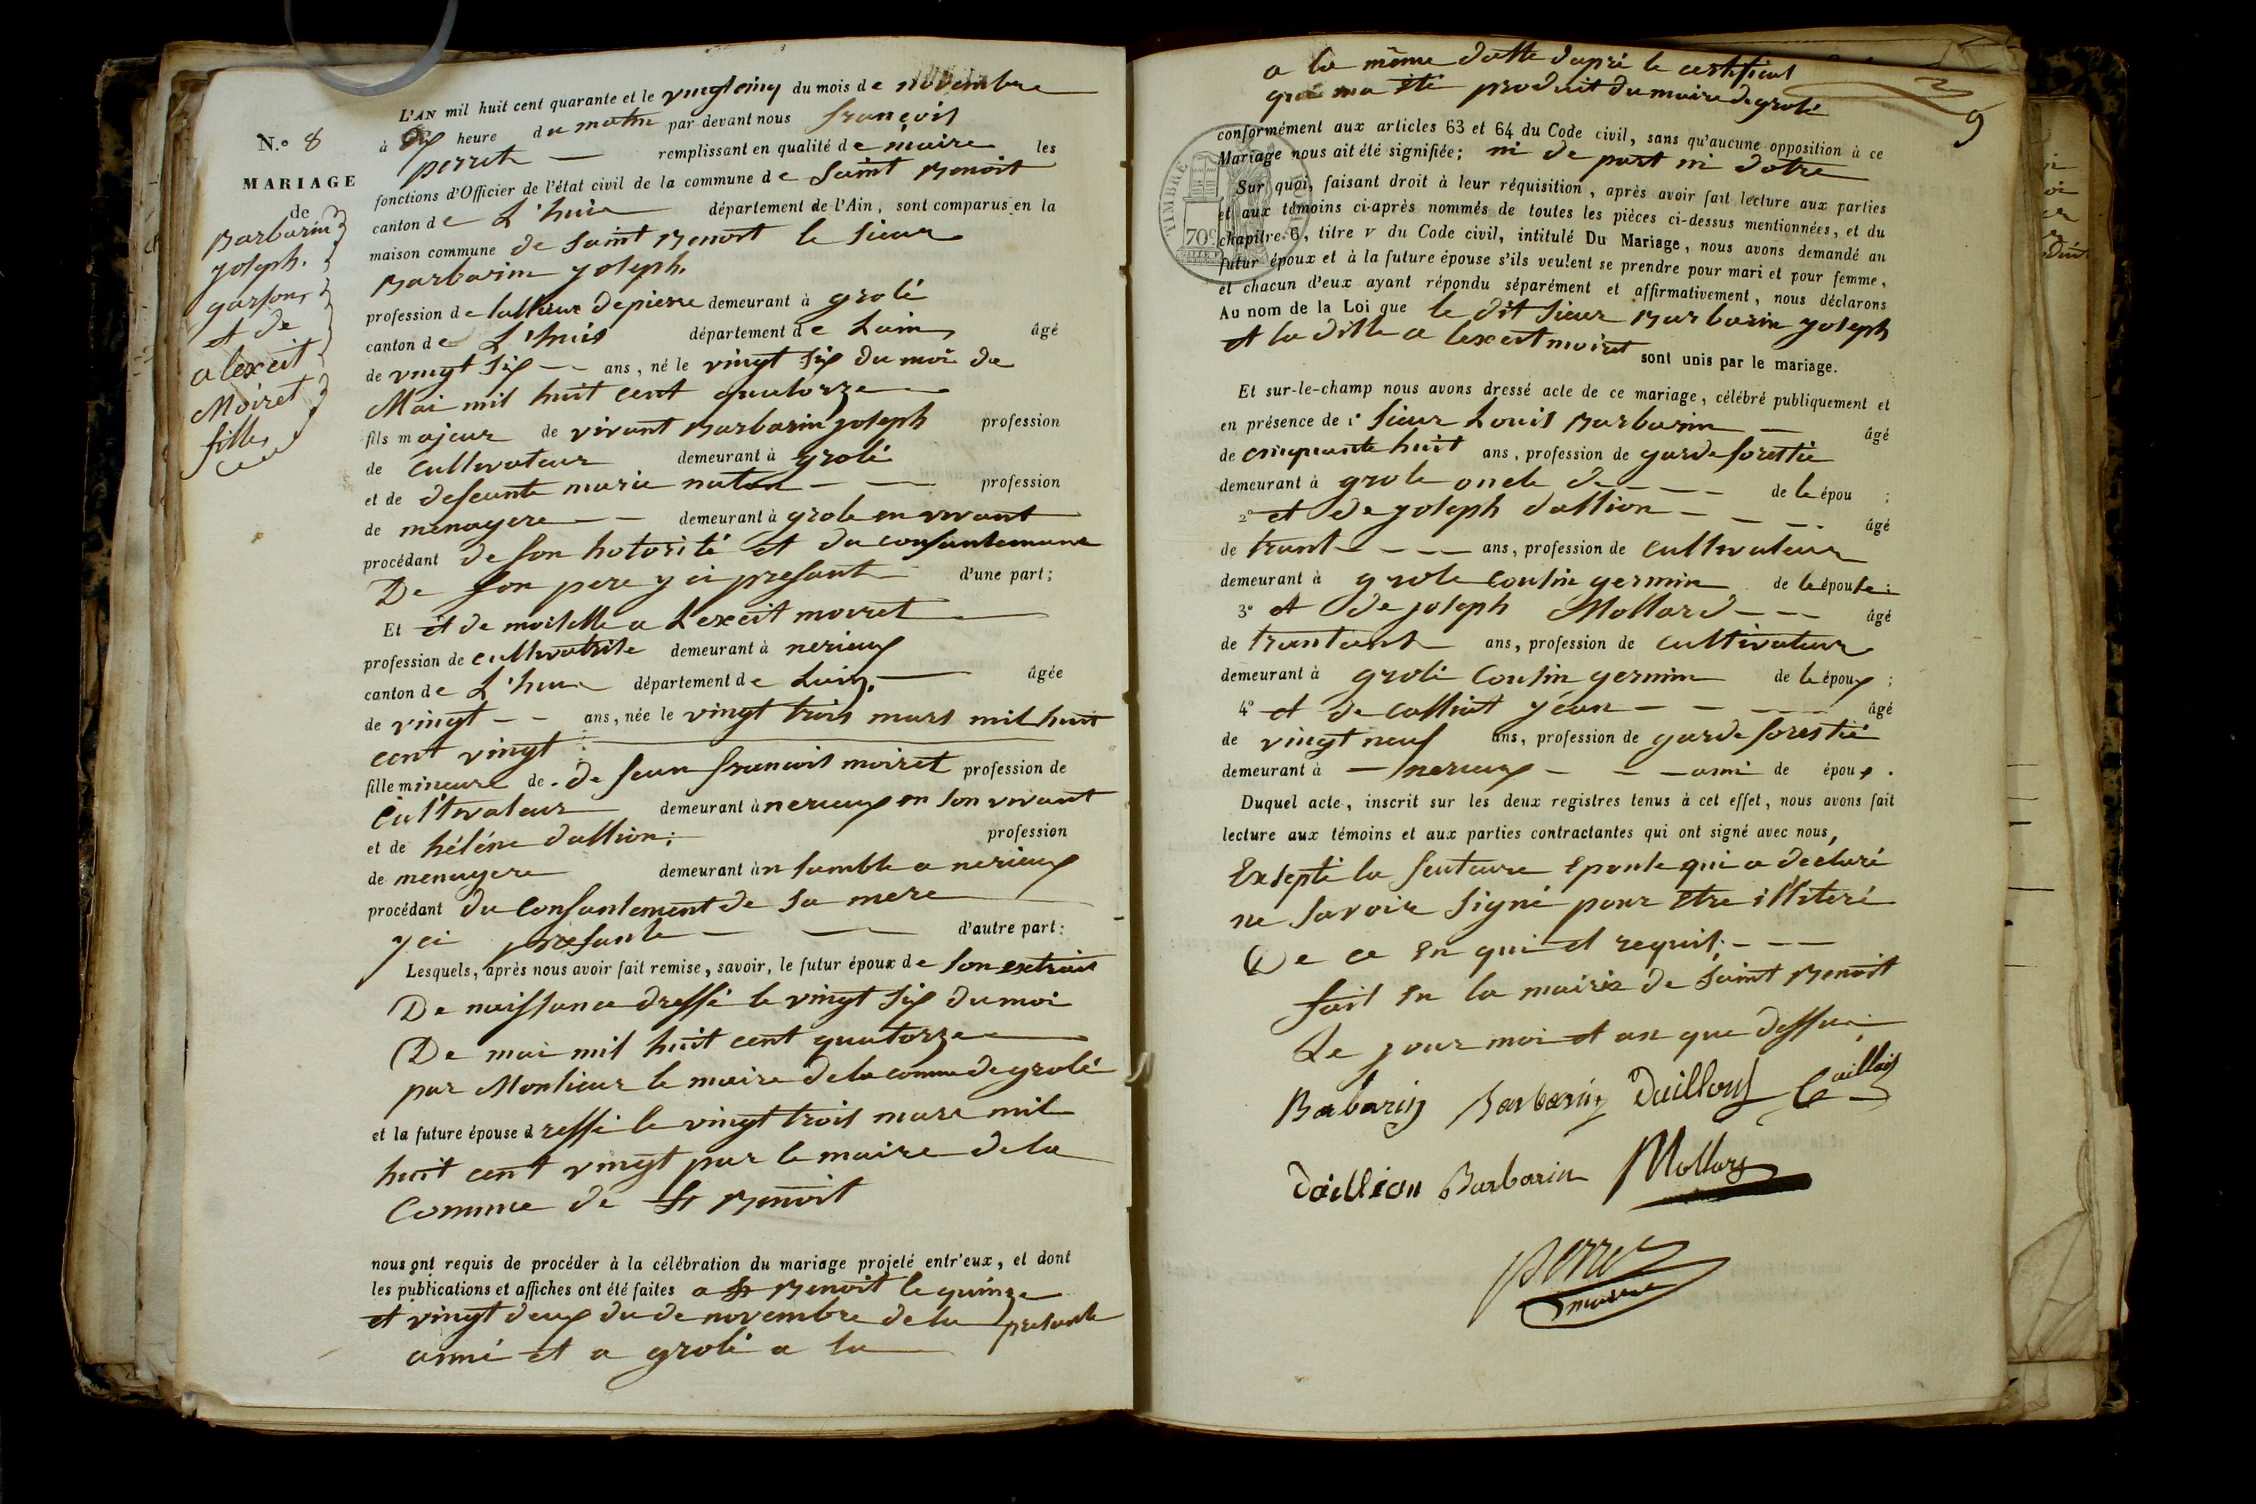 N.º 8
MARIAGE
de
Barbarin
joseph.
garson
et de
alexeit
Moiret
fille
L'AN mil huit cent quarante et le vingt cinq du mois de novembre
à dix heure du matin par devant nous françois
perret remplissant en qualité de maire les
fonctions d'Officier de l'état civil de la commune de saint Benoit
canton de L'huis département de l'Ain, sont comparus en la
maison commune de saint Benoit le sieur
Barbarin joseph.
profession de tallieur de pierre demeurant à grolé
canton de L'huis département de Lain âgé
de vingt six ans, né le vingt six du moi de
Mai mil huit cent quatorze
fils majeur de vivant Barbarin joseph profession
de cultivateur demeurant à grolé
et de defeunte marie profession
de menagere demeurant à grole en vivant
procédant de son hotorité et du consantemant
De son pere y ci presant d'une part;
Et et de moiselle a Lexeit moiret
profession de cultivatrise demeurant à nerieux
canton de L'huis département de Lain, âgée
de vingt ans, née le vingt trois mars mil huit
cent vingt
fille mineure de de feun francois moiret profession de
cultivateur demeurant à nerieux en son vivant
et de héléne dallion; profession
de menagere demeurant à n samble a nerieux
procédant du consantement de sa mere
y ci presante d'autre part:
Lesquels, après nous avoir fait remise, savoir, le futur époux de son extrait
De naissance dressé le vingt six du moi
De mai mil huit cent quatorze
par Monsieur le maire de la comme de grolé
et la future épouse dressé le vingt trois mars mil
huit cent vingt par le maire de la
Comme de St Benoit
nous ont requis de procéder à la célébration du mariage projeté entr'eux, et dont
les publications et affiches ont été faites a St Benoit le quinze
et vingt deux du de novembre de la presante
anné et a grolé a la
a la même datte dapré le certificat
qui ma été produit du maire de grolé
9
TIMBRE
70c
conformément aux articles 63 et 64 du Code civil, sans qu'aucune opposition à ce
Mariage nous ait été signifiée; ni de part ni dotre
Sur quoi, faisant droit à leur réquisition, après avoir fait lecture aux parties
et aux témoins ci-après nommés de toutes les pièces ci-dessus mentionnées, et du
chapitre 6, titre v du Code civil, intitulé Du Mariage, nous avons demandé au
futur époux et à la future épouse s'ils veulent se prendre pour mari et pour femme,
et chacun d'eux ayant répondu séparément et affirmativement, nous déclarons
Au nom de la Loi que le dit sieur Barbarin joseph
et la ditte a lexeit moiret sont unis par le mariage.
Et sur-le-champ nous avons dressé acte de ce mariage, célébré publiquement et
en présence de : sieur Louis Barbarin âgé
de cinquante huit ans, profession de garde forettié
demeurant à grole oncle de de le épou ;
2º et de joseph dallion âgé
de trant ans, profession de cultivateur
demeurant à grole cousin germin de le épouse;
3º et de joseph Mollard âgé
de ans, profession de cultivateur
demeurant à grolé cousin germin de le époux ;
4º et de jéan âgé
de vingt neuf ans, profession de garde forestié
demeurant à nerieux ami de époux.
Duquel acte, inscrit sur les deux registres tenus à cet effet, nous avons fait
lecture aux témoins et aux parties contractantes qui ont signé avec nous,
Exsepté la feuteure epouse qui a declaré
ne savoir signé pour etre illiteré
De ce en qui et requis;
fait en la mairie de saint Benoit
Le jour moi et an que dessu
Babarin Barbarin Daillon
Daillion Barbarin Mollard
perret
maire